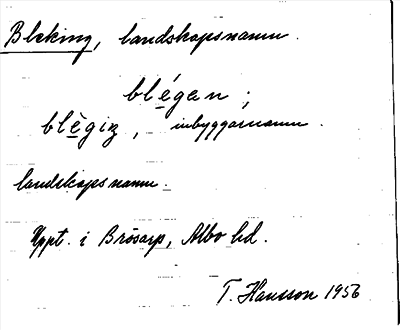 Bleking, landskapsnamn.
blégen ;
blègiz, inbyggarnamn.
landskapsnamn.
Uppt. i Brösarp, Albo hd.
T. Hansson 1956